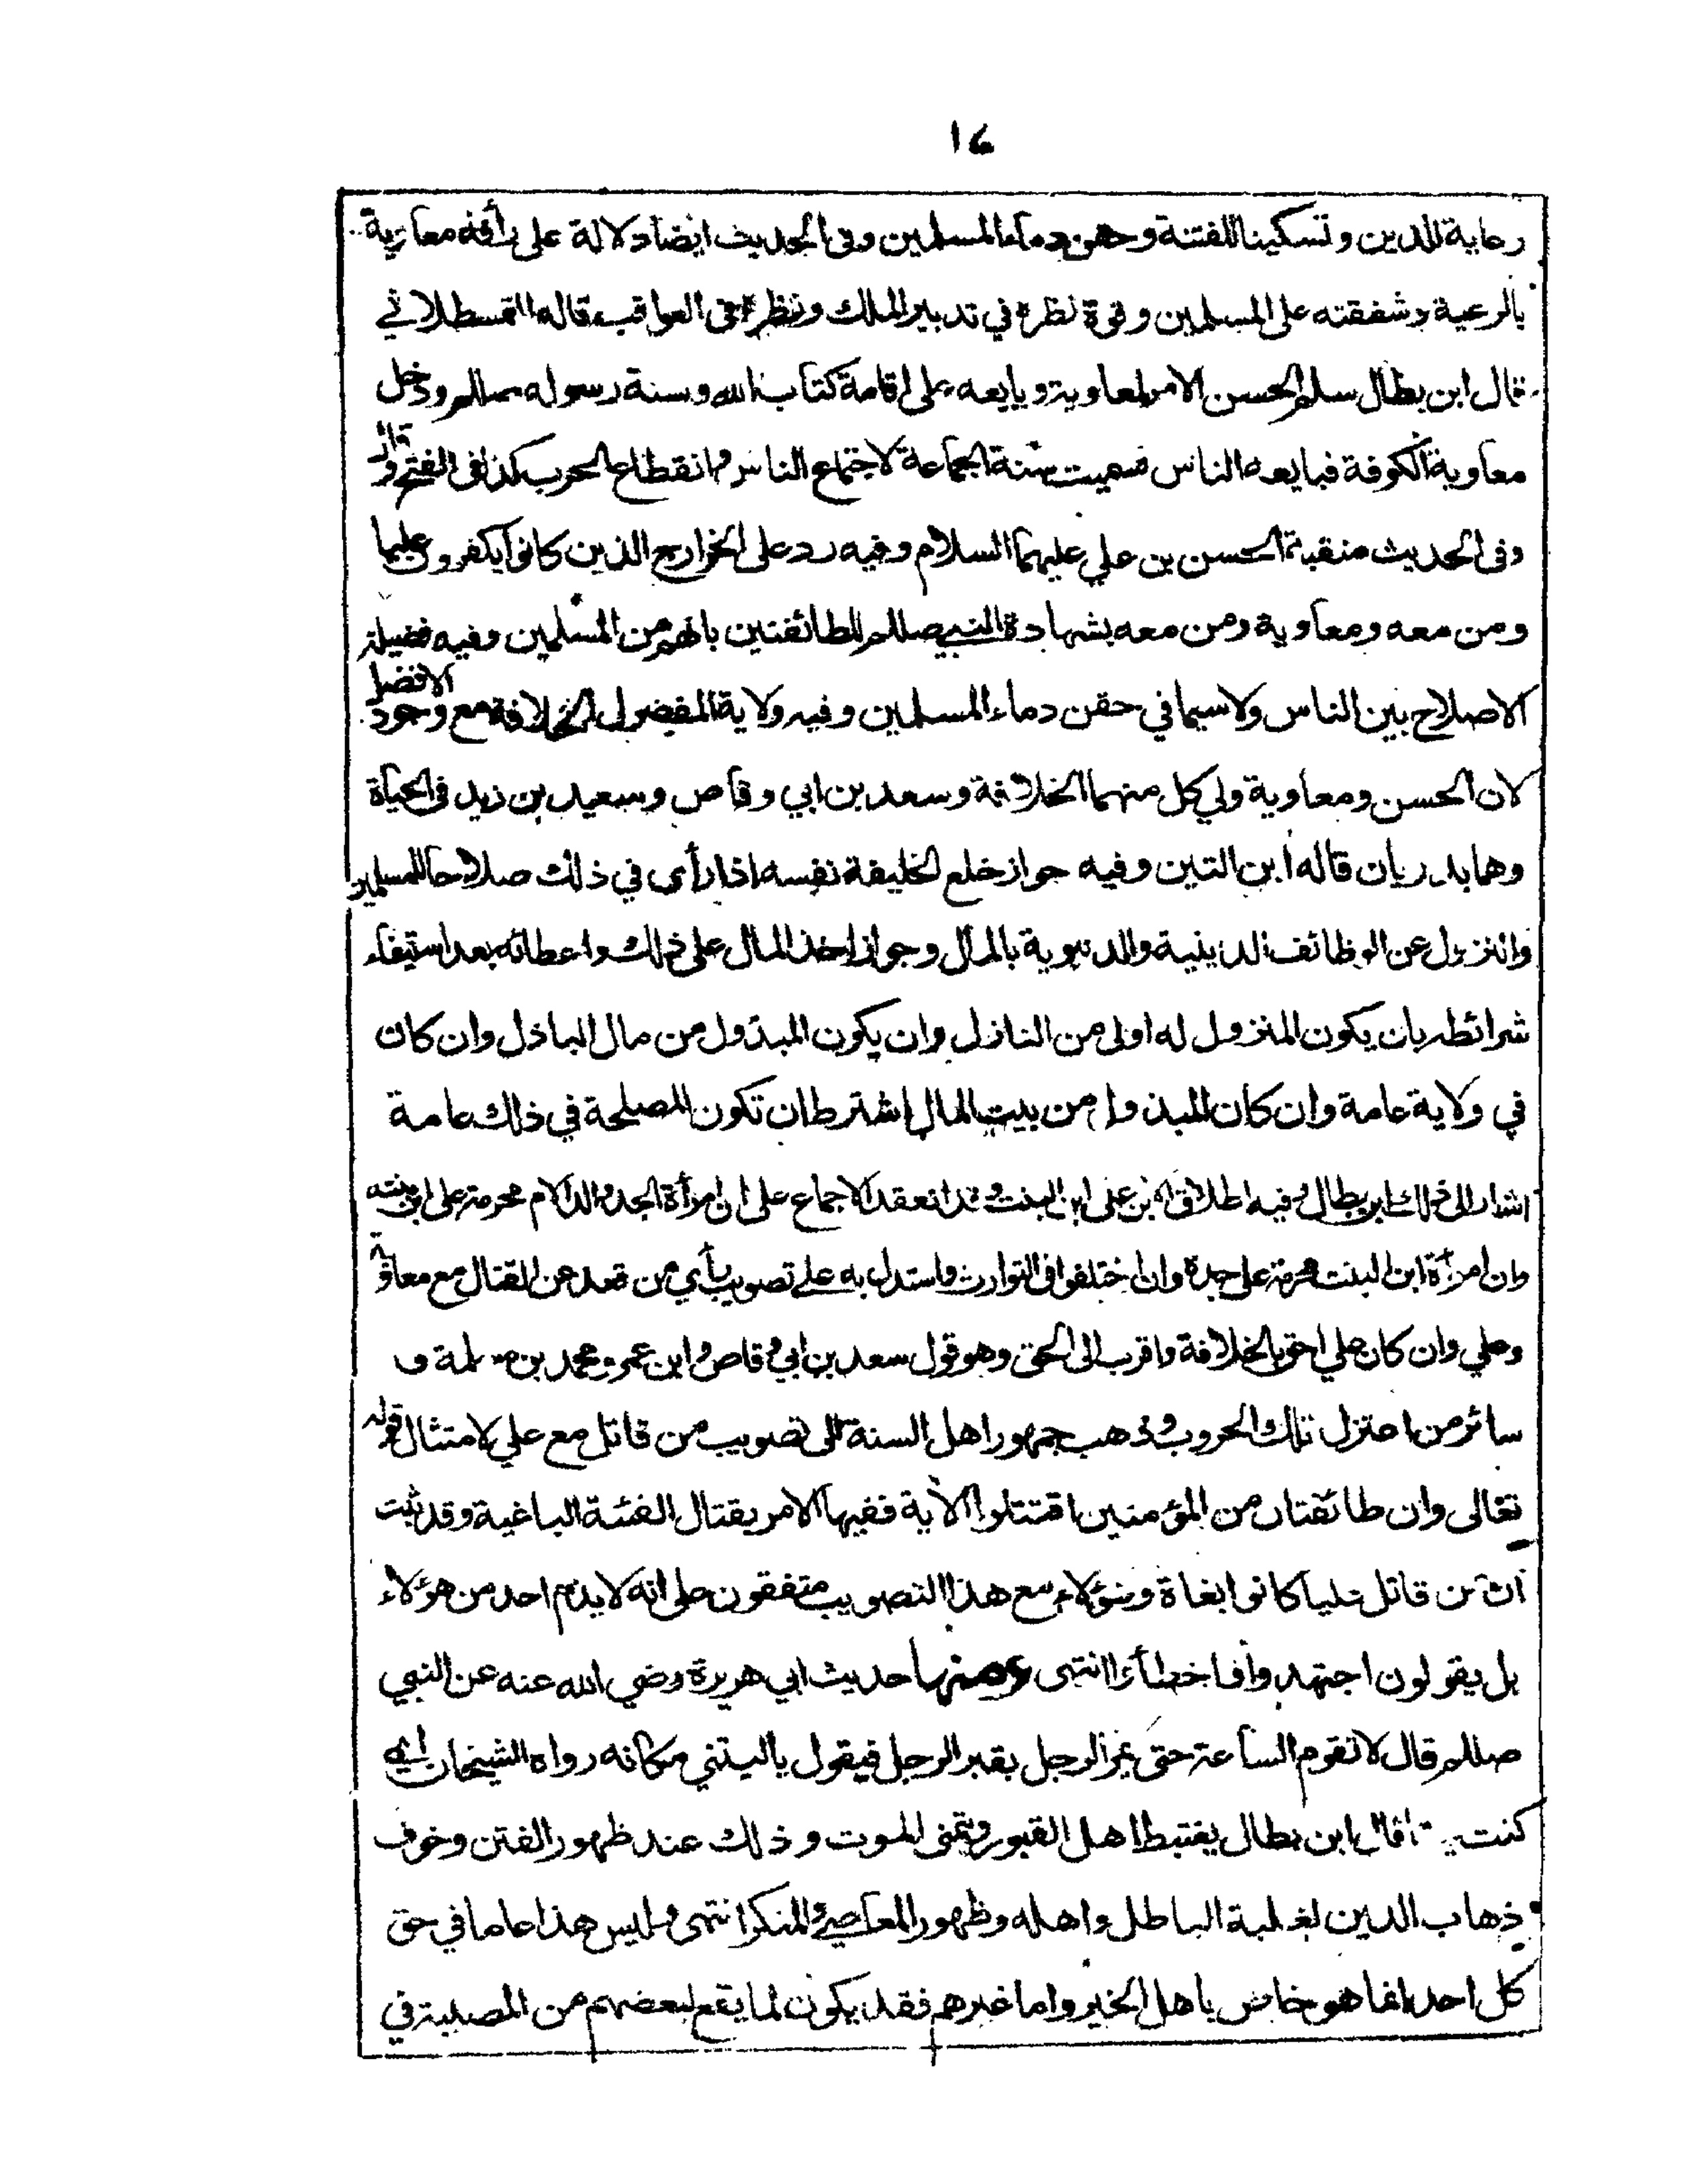 ١٤
رعاية للدين وتسكينا للفتنة وحقن دماء المسلمين وفى الحديث ايضا دلالة على رأفة معاوية
بالرعية وشفقته على المسلمين وقوة نظره في تدبير الملك ونظره فى العواقب قاله القسطلاني
قال ابن بطال سلم الحسن الامر لمعاوية وبايعه على اقامة كتاب الله وسنة رسوله صللم ودخل
معاوية الكوفة فبايعه الناس فسميت سنة الجماعة لاجتماع الناس وانقطاع الحرب كذا فى الفتح وقال
وفى الحديث منقبة الحسن بن علي عليهما السلام وفيه رد على الخوارج الذين كانوا يكفرون عليا
ومن معه ومعاوية ومن معه بشهادة النبي صللم للطائفتين بانهم من المسلمين وفيه فضيلة
الاصلاح بين الناس ولا سيما في حقن دماء المسلمين وفيه ولاية المفضول الخلافة مع وجود الافضل
لان الحسن ومعاوية ولي كل منهما الخلافة وسعد بن ابي وقاص وسعيد بن زيد فى الحياة
وهما بدريان قاله ابن التين وفيه جواز خلع الخليفة نفسه اذا رأى في ذلك صلاحا للمسلمين
والنزول عن الوظائف الدينية والدنيوية بالمال وجواز اخذ المال على ذلك واعطائه بعد استيفاء
شرائطه بان يكون المنزول له اولى من النازل وان يكون المبذول من مال الباذل وان كان
في ولاية عامة وان كان المبذول من بيت المال اشترط ان تكون المصلحة في ذلك عامة
اشار الى ذلك ابن بطال وفيه اطلاق الابن على ابن البنت وقد انعقد الاجماع على ان امرأة الجد والد الام محرمة على ابن بنته
وان امرأة ابن البنت محرمة على جده وان اختلفوا فى التوارث واستدل به على تصويب رأي من قعد عن القتال مع معاوية
وعلي وان كان علي احق بالخلافة واقرب الى الحق وهو قول سعد بن ابي وقاص وابن عمر ومحمد بن مسلمة و
سائر من اعتزل تلك الحروب وذهب جمهور اهل السنة الى تصويب من قاتل مع علي لامتثال قوله
تعالى وان طائفتان من المؤمنين اقتتلوا الآية ففيها الامر بقتال الفئة الباغية وقد ثبت
ان من قاتل عليا كانوا بغاة وهؤلاء مع هذا التصويب متفقون على انه لا يذم احد من هؤلاء
بل يقولون اجتهدوا فاخطأوا انتهى ومنها حديث ابي هريرة رضي الله عنه عن النبي
صللم قال لا تقوم الساعة حتى يمر الرجل بقبر الرجل فيقول يا ليتني مكانه رواه الشيخان اي
كنت ميتا قال ابن بطال يغتبط اهل القبور وتمنى الموت وذلك عند ظهور الفتن وخوف
ذهاب الدين لغلبة الباطل واهله وظهور المعاصي والمنكر انتهى وليس هذا عاما في حق
كل احد انما هو خاص باهل الخير واما غيرهم فقد يكون لما يقع لبعضهم من المصيبة في